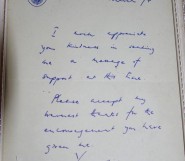 I
your kindness in sending
me a message of
support at this time.
Please accept my
warmest thanks for the
encouragement you have
given me.